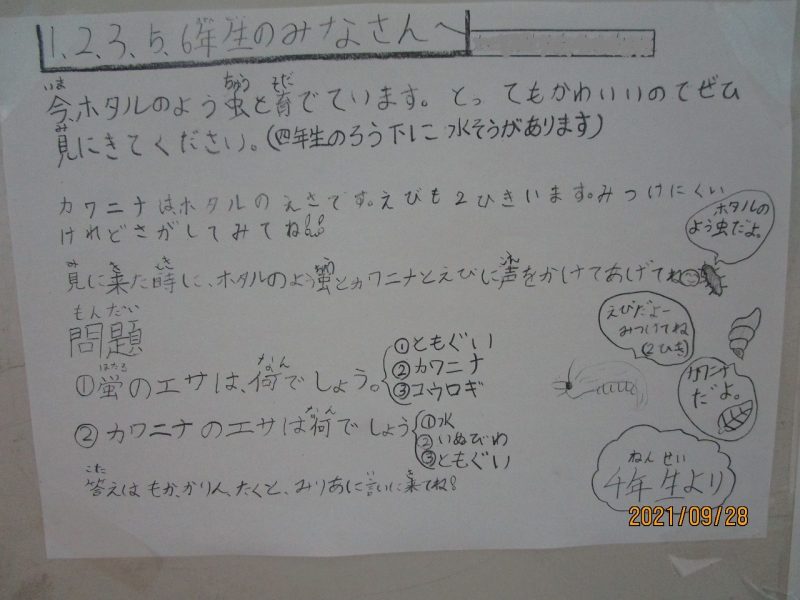 1、2、3、5、6年生のみなさんへ
今、ホタルのよう虫を育てています。とってもかわいいのでぜひ
見にきてください。(四年生のろう下に水そうがあります)
カワニナは、ホタルのえさです。えびも2ひきいます。みつけにくい
けれどさがしてみてね!!
見に来た時に、ホタルのよう虫とカワニナとえびに声をかけてあげてね
ホタルの
よう虫だよ。
えびだよー
みつけてね
(2ひき)
カワニナ
だよ。
問題
①蛍のエサは、何でしょう。
①ともぐい
②カワニナ
③コウロギ
②カワニナのエサは何でしょう
①水
②いぬびわ
③ともぐい
答えは、もか、かりん、たくと、みりあに言いに来てね!
4年生より
2021/09/28